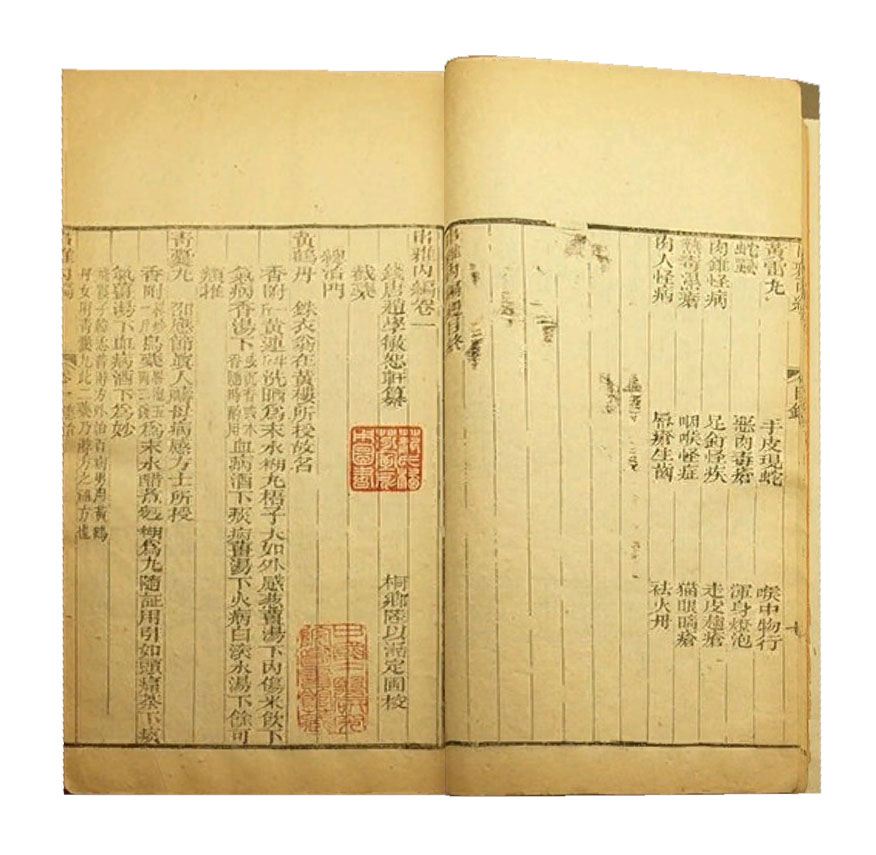 黃雷丸 手皮現蛇 喉中物行
蛇蝨 惡肉毒瘡 渾身燎泡
肉錐怪病 足釘怪疾 走皮瘇瘡
熱毒濕瘡 咽喉怪症 猫眼睛瘡
肉人怪病 唇瘡生齒 祛火丹
串雅內編 目錄終
串雅內編卷一
錢唐趙學敏恕軒纂 桐鄉陸以湉定圃校
截藥
總治門
黃鶴丹 銖衣翁在黃樓所授故名
香附一 黃連 洗晒爲末水糊丸梧子大如外感蔥薑湯下內傷米飲下
氣病香湯下 血病酒下痰病薑湯下火病白滾水湯下餘可
類推
青囊丸 邵應節眞人禱母病感方士所授
香附 烏藥 爲末水醋煮麪糊爲丸隨証用引如頭痛茶下痰
氣薑湯下血病酒下爲妙
飛霞子 游方外治百病男用黃鶴
丹女用青囊丸此二藥乃游方之祖方也